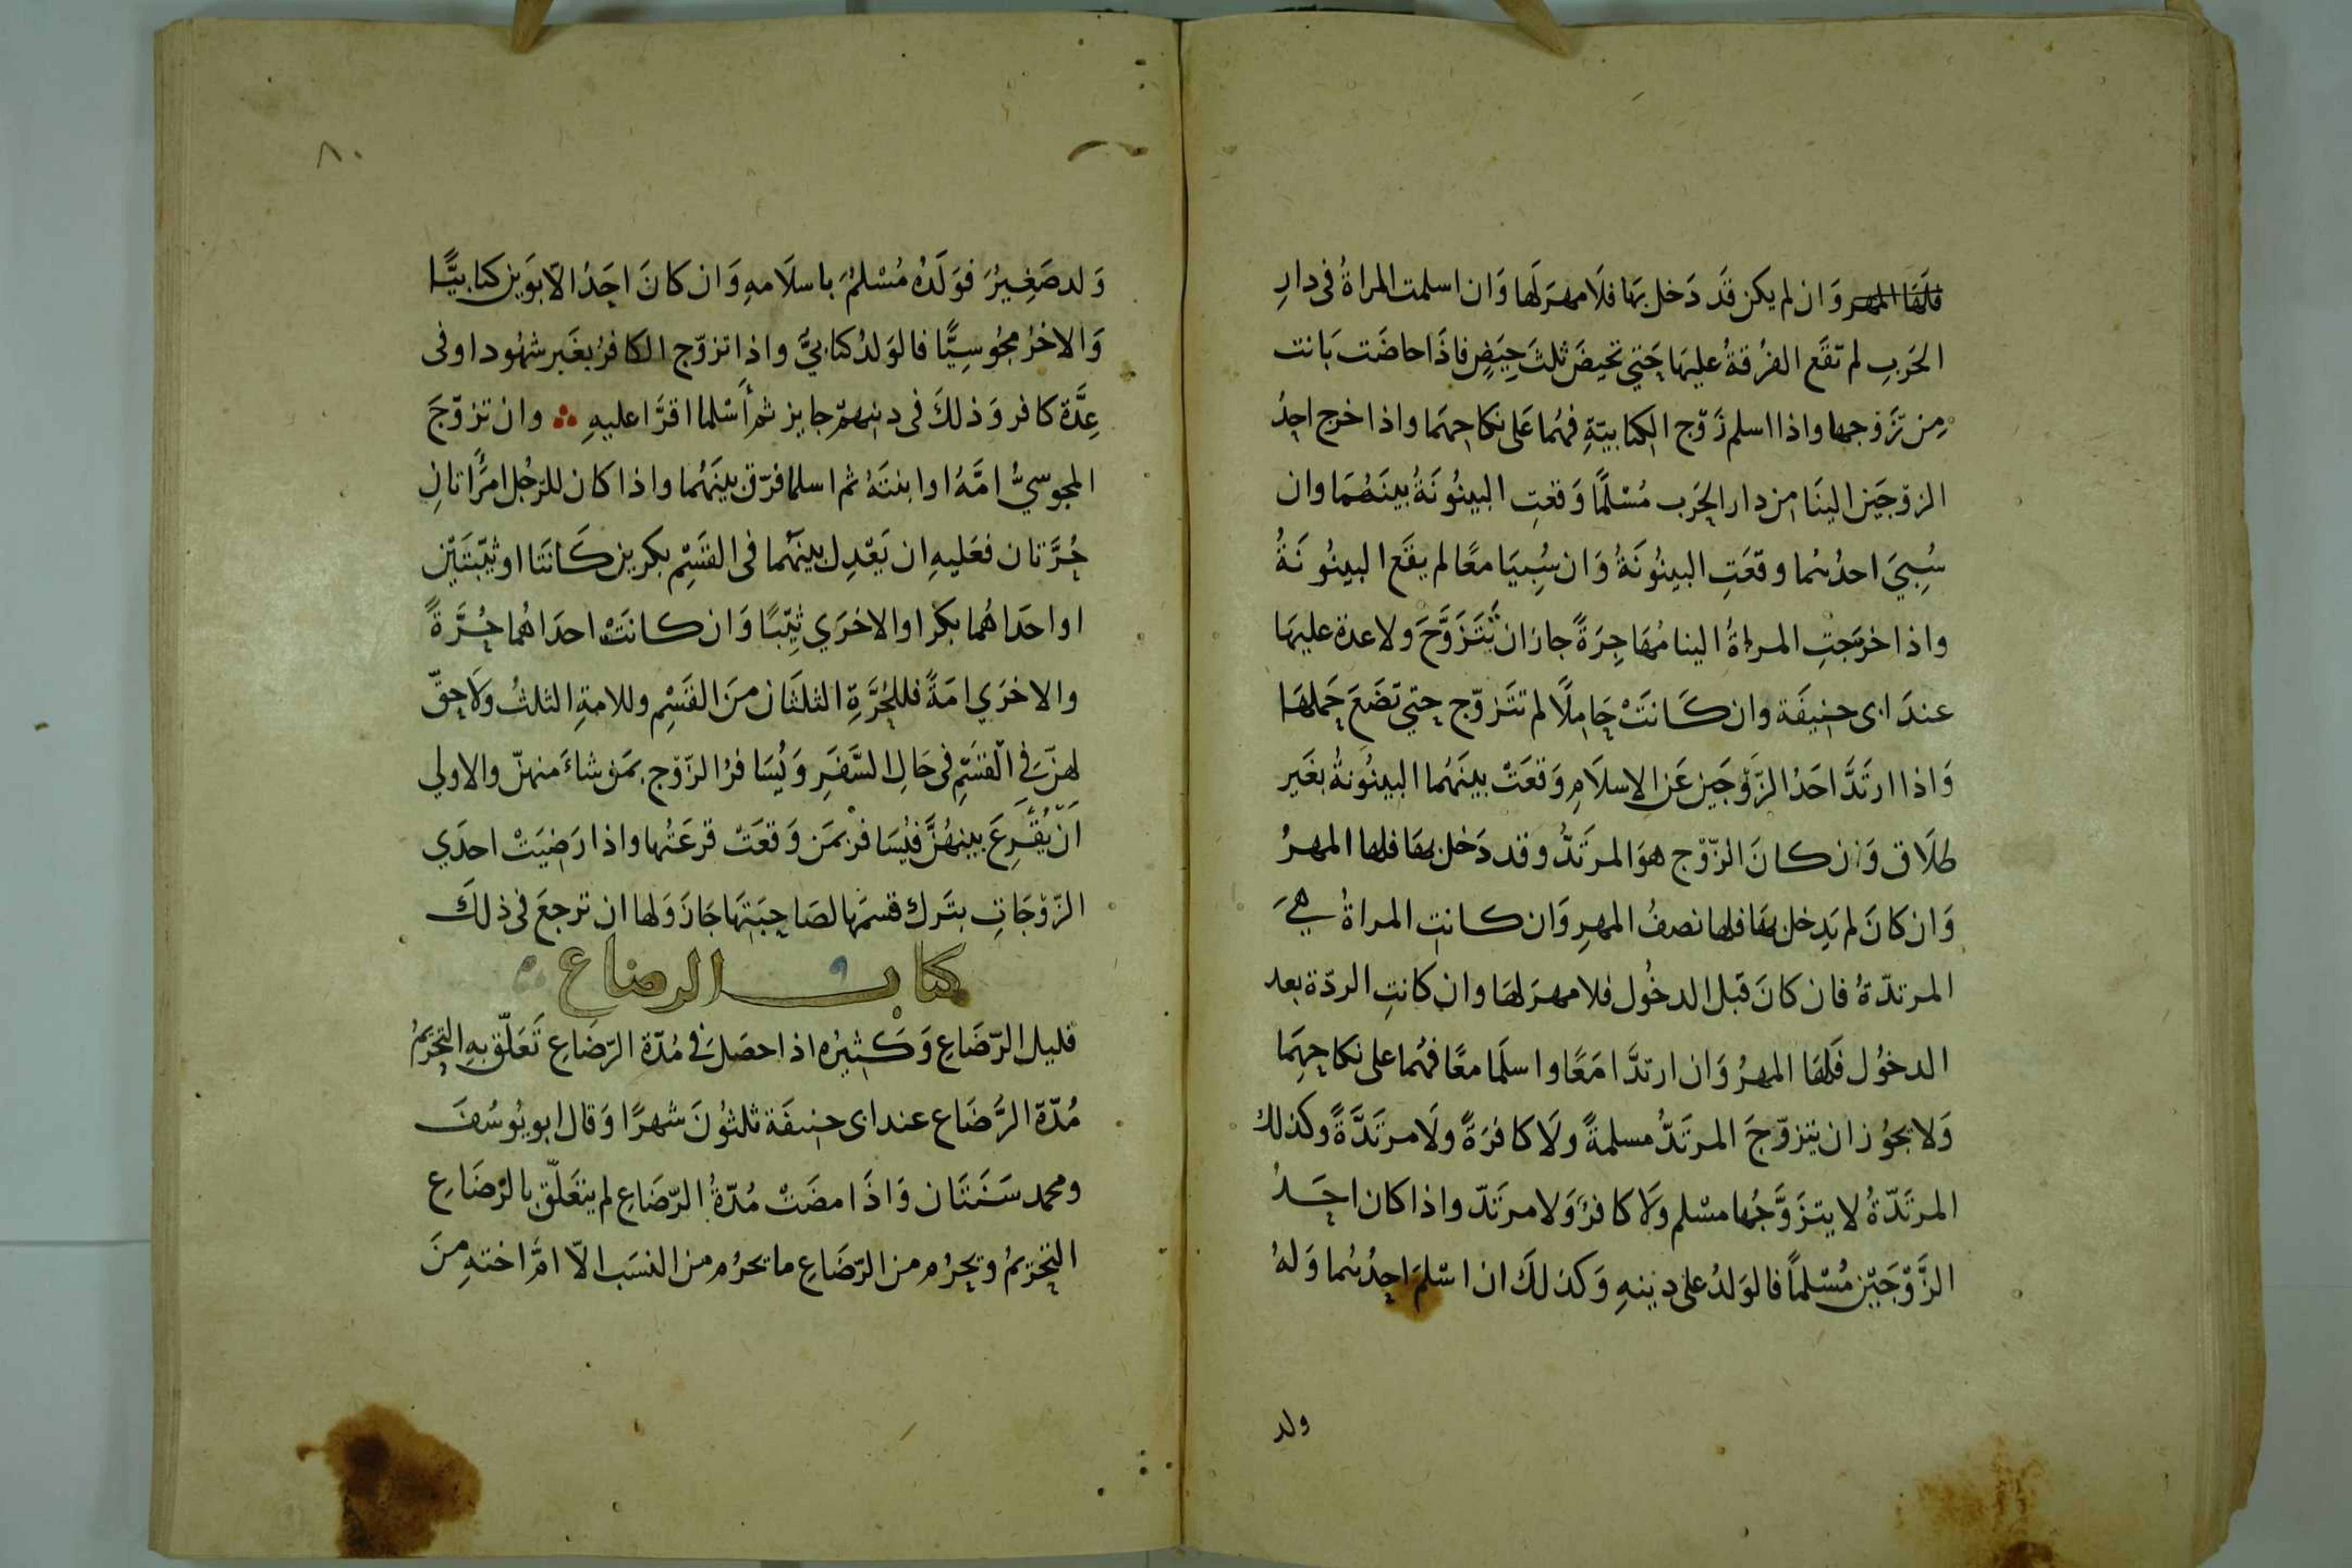 فلها المهر وَان لم يكن قَد دَخل بهَا فلَا مهرَ لَها وَان اسلمت المراةُ فى دارِ
الحَربِ لم تقَع الفرُقةُ عليهَا حَتي تحيضَ ثلثَ حِيَضٍ فاذَا حاضَت بَانت
مِن زَوجها واذا اسلم زَوّج الكتابيّةِ فهُما عَلى نكاحهمَا واذا خرج احدُ
الزوّجَين الينَا من دار الحَرب مُسْلمًا وَقعتِ البينُونَةُ بينَهُمَا وان
سُبيَ احدُهُما وقعَتِ البينُونَةُ وَان سُبِيَا معًا لم يقَع البينُونَةُ
واذا خرَجتِ المراةُ الينا مُهَاجِرَةً جازَ ان تَتَزَوَّجَ ولا عدة عليهَا
عندَ ابى حنيفَة وان كَانَتْ حَامِلًا لم تتَزوّج حتي تضَعَ حَملهَا
وَاذا ارتَدَّ احَدُ الزَّوْجَين عَن الاِسلَامِ وَقعَتْ بينَهُما البينُونةُ بغَير
طلَاق وَان كانَ الزّوّج هوَ المرتَدُّ وقد دَخل بهَا فلها المهرُ
وَان كانَ لم يَدخل بهَا فلها نصفُ المهرِ وَان كانتِ المراةُ هيَ
المرتدّةُ فان كانَ قبَل الدخُول فلا مهرَ لهَا وان كانتِ الردّة بعد
الدخُول فَلهَا المهرُ وَان ارتدَّا مَعًا واسلَما معًا فهُما على نكاحِهِمَا
وَلا يجوُز ان يتزوّجَ المرتَدُّ مسلمةً ولَا كافرَةً ولَا مرتَدَّةً وكذلك
المرتَدّةُ لا يتزَوَّجُها مسْلم وَلَا كافرٌ وَلا مرتَدّ واذا كان احَدُ
الزَّوْجَيْن مُسْلماً فالوَلدُ على دينهِ وَكذلَكَ ان اسْلمَ احدُهُما وَلهُ
ولد
٨٠
وَلد صَغِيرُ فوَلَدُهُ مُسْلمُ باسلَامهِ وَان كانَ احَدُ الاَبوَين كتابيًّا
وَالاخرُ مجُوسِيًّا فالوَلدُ كتابيُّ واذا تزوّج الكافرُ بغَير شهُود اوفى
عِدَّة كافر وَذلكَ فى دينهمّ جايز ثم أَسْلما اقرَّا عليهِ وان تزوّجَ
المجوسيُّ امَّهُ اوابنتَهُ ثم اسلما فرّق بينَهُما واذا كان للرّجُل امرَاتانِ
حُرَّتان فعَليهِ ان يَعْدِل بينَهُما فى القسَمِ بكرين كَانَتا او ثيّبتَيْن
او احَداهُما بكرا والاخرَي ثيِّبًا وَان كانَتْ احدَاهُما حُرَّةً
والاخرَي امَةً فللحُرَّةِ الثلثَان منَ القسَمْ وللامةِ الثلثُ وَلَا حقّ
لهنَّ في القسَمِ فى حَالِ السَّفَرِ وَيُسَافرُ الزّوّج بمَن شاءَ منهنّ والاولي
اَنْ يُقْرِعَ بينهُنَّ فيُسَافرَ بمَن وَقعَتْ قرعَتُها واذا رَضيَتْ احدَي
الزّوْجَاتِ بتَرك قسمهَا لصَاحِبَتِهَا جَازَ وَلها ان ترجعَ فى ذلكَ
كتاب الرضاع
قليل الرّضَاعِ وَكَثيرُه اذا حصَلَ في مُدّة الرّضَاعِ تَعَلّق بهِ التحَريمُ
مُدّة الرَّضَاع عند ابى حنيفَة ثلثوُنَ شهرًا وَقال ابو يوُسُفَ
ومحمد سَنَتَان وَاذَا مضَتْ مُدّةُ الرّضَاعِ لم يتعَلّق بالرّضَاعِ
التحَريمُ ويحَرُم من الرّضَاعِ ما يحَرُم من النسَب الاّ امَّ اختهِ منَ